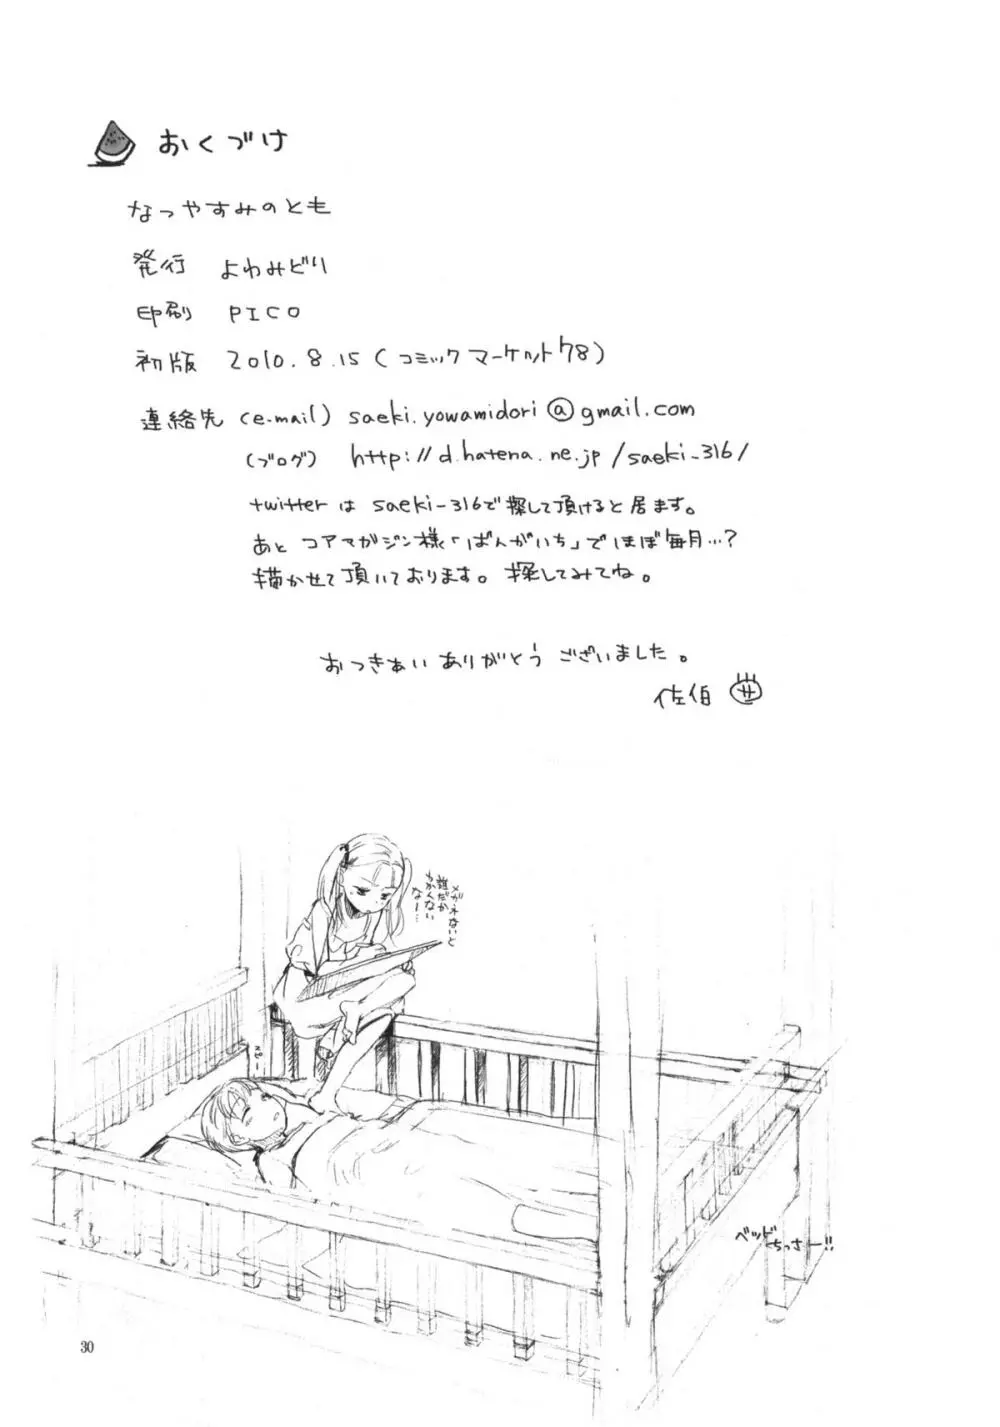 おくづけ
なつやすみのとも
発行 よわみどり
印刷 PICO
初版 2010.8.15(コミックマーケット78)
連絡先 (e-mail) saeki.yowamidori@gmail.com
(ブログ) http://d.hatena.ne.jp/saeki-316/
twitterは saeki-316で探して頂けると居ます。
あと コアマガジン様「ばんがいち」でほぼ毎月…?
描かせて頂いております。探してみてね。
おつきあい ありがとう ございました。
佐伯 サ
メガネないと
誰だか
わかんない
なー…
スピー
ベッド
ちっさー!!
30